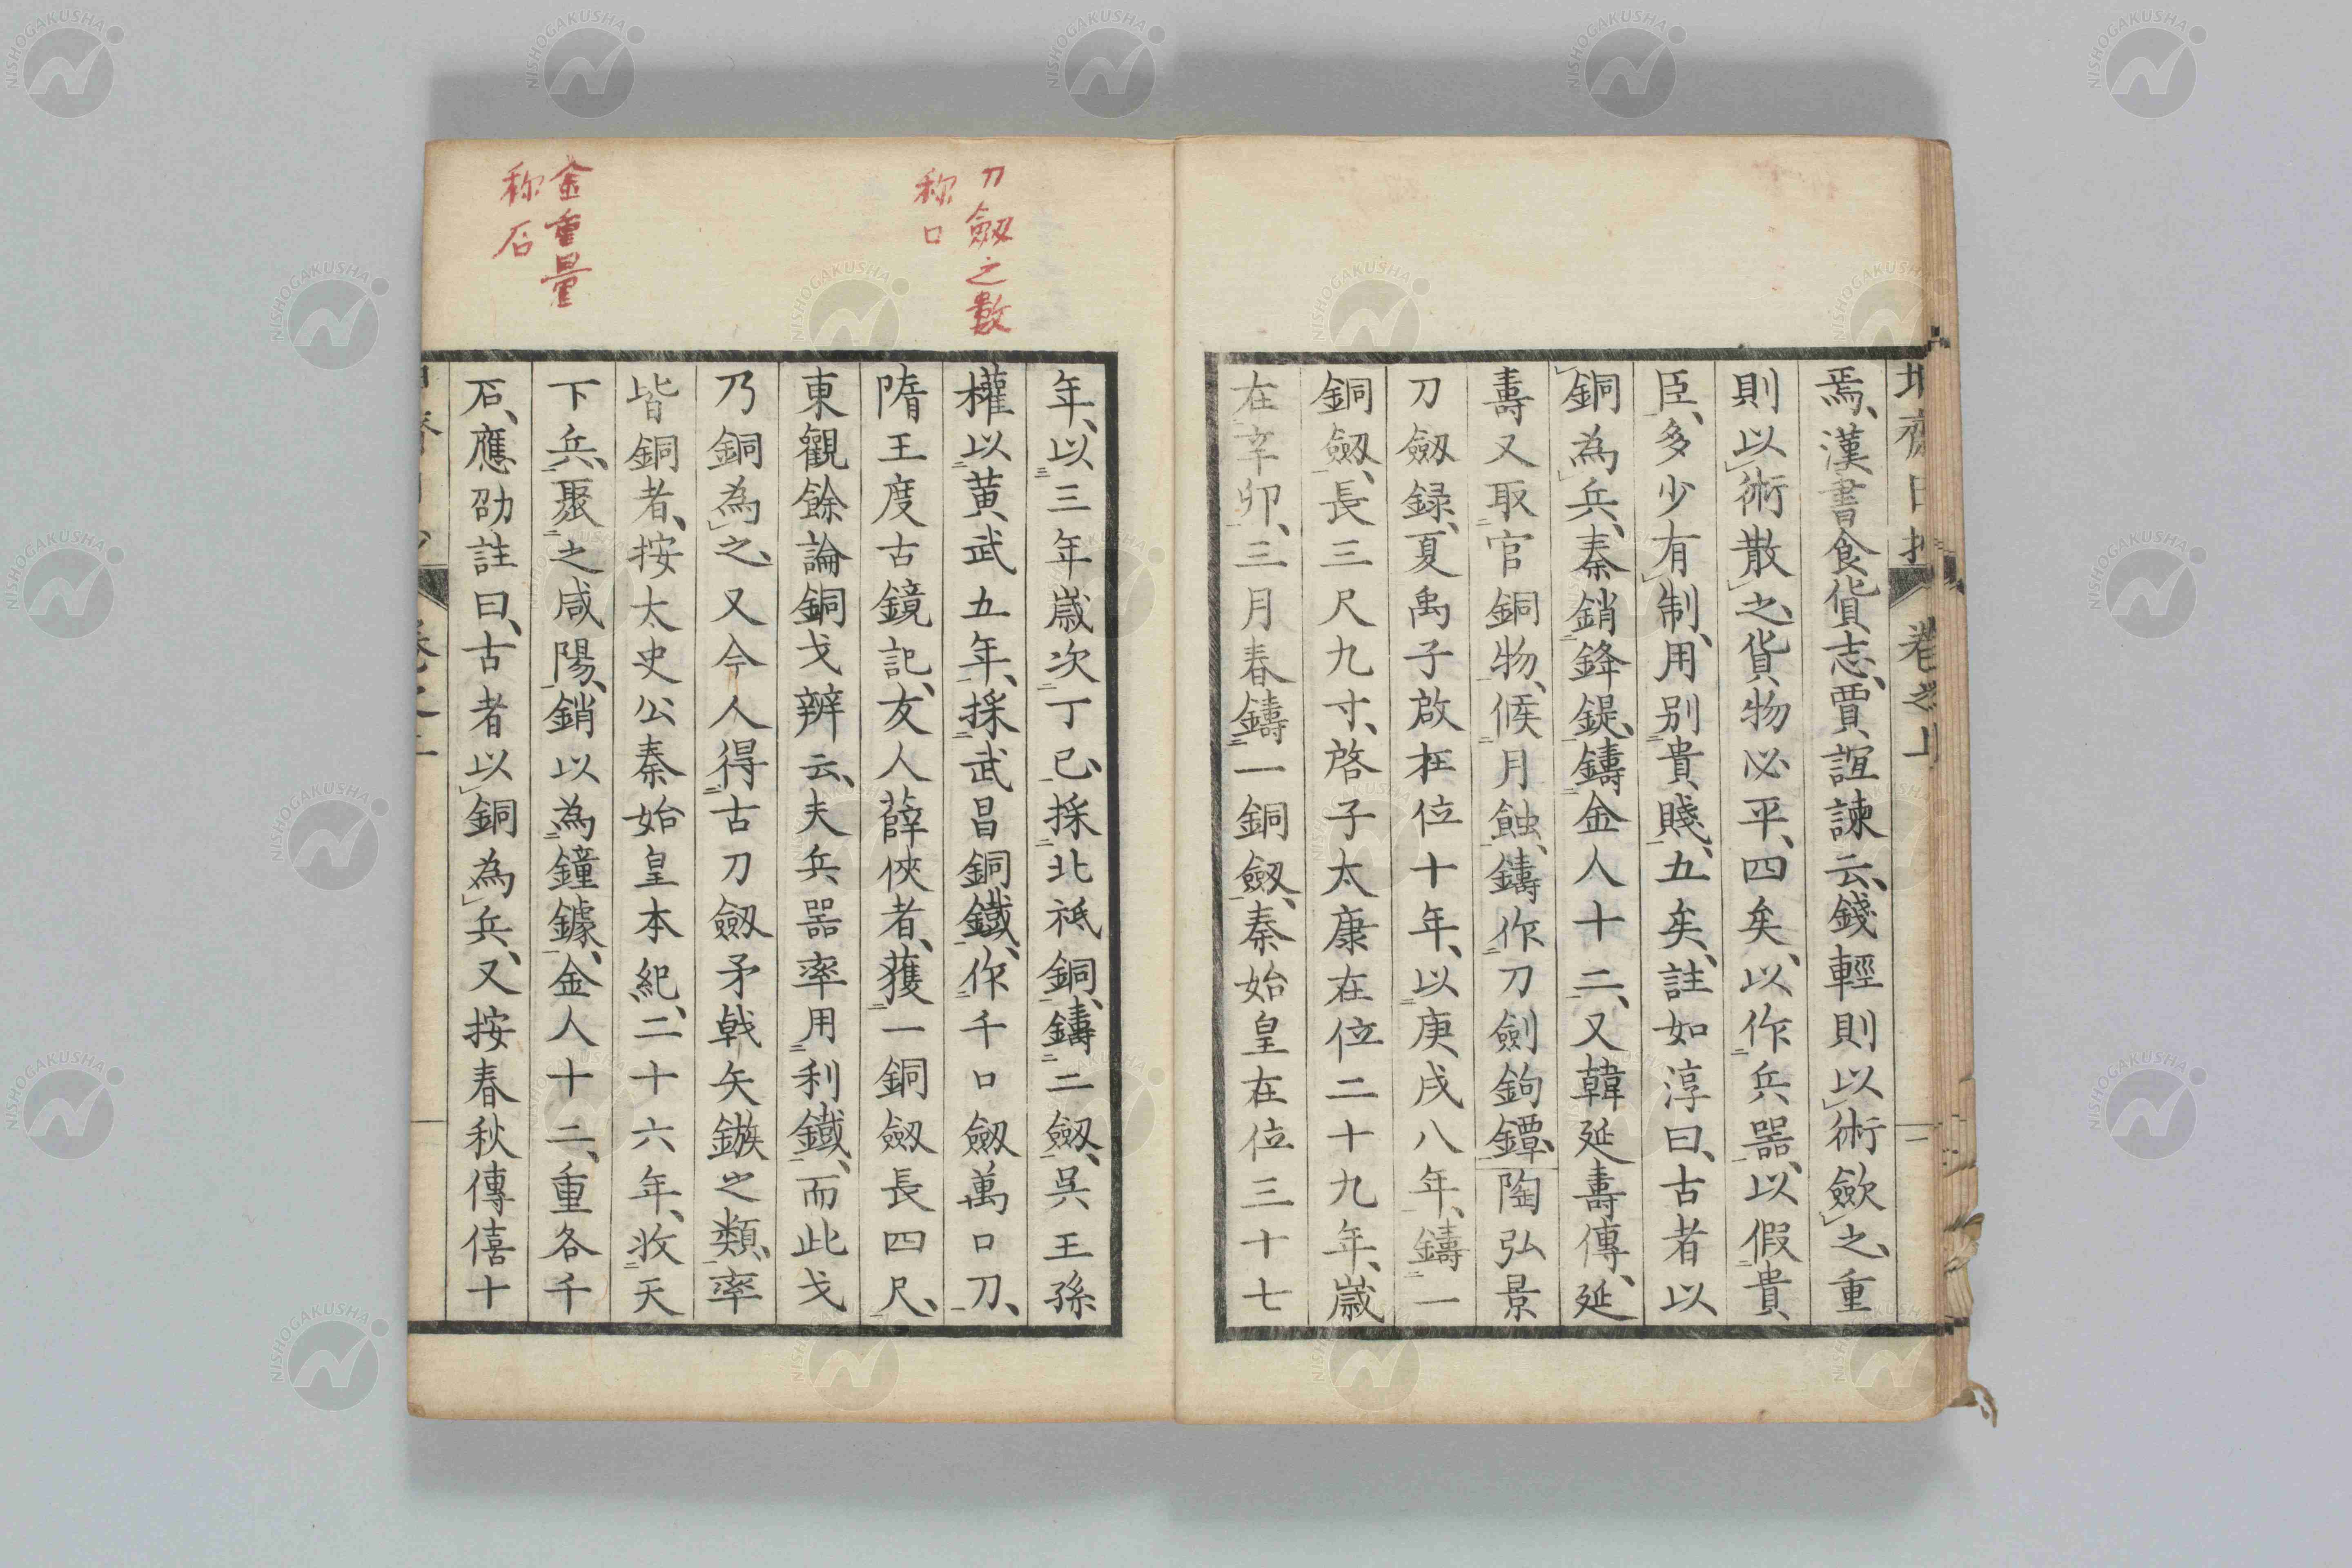 焉、漢書食貨志、賈誼諫云、錢輕則以術斂之、重
則以術散之、貨物必平、四矣、以作兵噐、以假貴
臣、多少有制、用別貴賤、五矣、註如淳曰、古者以
銅為兵、秦銷鋒鍉、鑄金人十二、又韓延壽傳、延
壽又取官銅物、候月蝕、鑄作刀劍鉤鐔、陶弘景
刀劔録、夏禹子啟在位十年、以庚戌八年、鑄一
銅劔、長三尺九寸、啓子太康在位二十九年、歲
在辛卯、三月春鑄一銅劔、秦始皇在位三十七
刀劔之數
称口
年、以三年歲次丁巳、採北祇銅、鑄二劔、呉王孫
權以黄武五年、採武昌銅鐵、作千口劔萬口刀、
隋王度古鏡記、友人薛俠者、獲一銅劔長四尺、
東觀餘論銅戈辨云、夫兵噐率用利鐵、而此戈
乃銅為之、又今人得古刀劔矛戟矢鏃之類、率
皆銅者、按太史公秦始皇本紀、二十六年、收天
下兵、聚之咸陽、銷以為鐘鐻、金人十二、重各千
石、應劭註曰、古者以銅為兵、又按春秋傳僖十
金重量
称石
卷之上
NISHOGAKUSHA